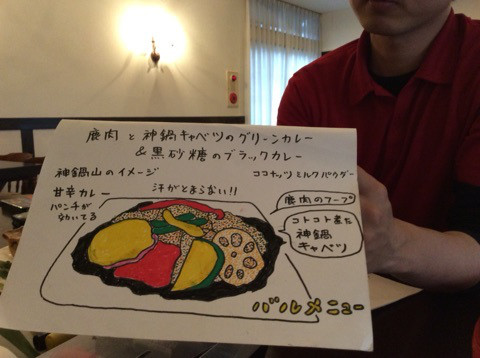 鹿肉と神鍋キャベツのグリーンカレー
&黒砂糖のブラックカレー
神鍋山のイメージ
ココナッツミルクパウダー
甘辛カレー
パンチが
効いてる
汗がとまらない!!
鹿肉のスープ
コトコト煮た
神鍋
キャベツ
バルメニュー